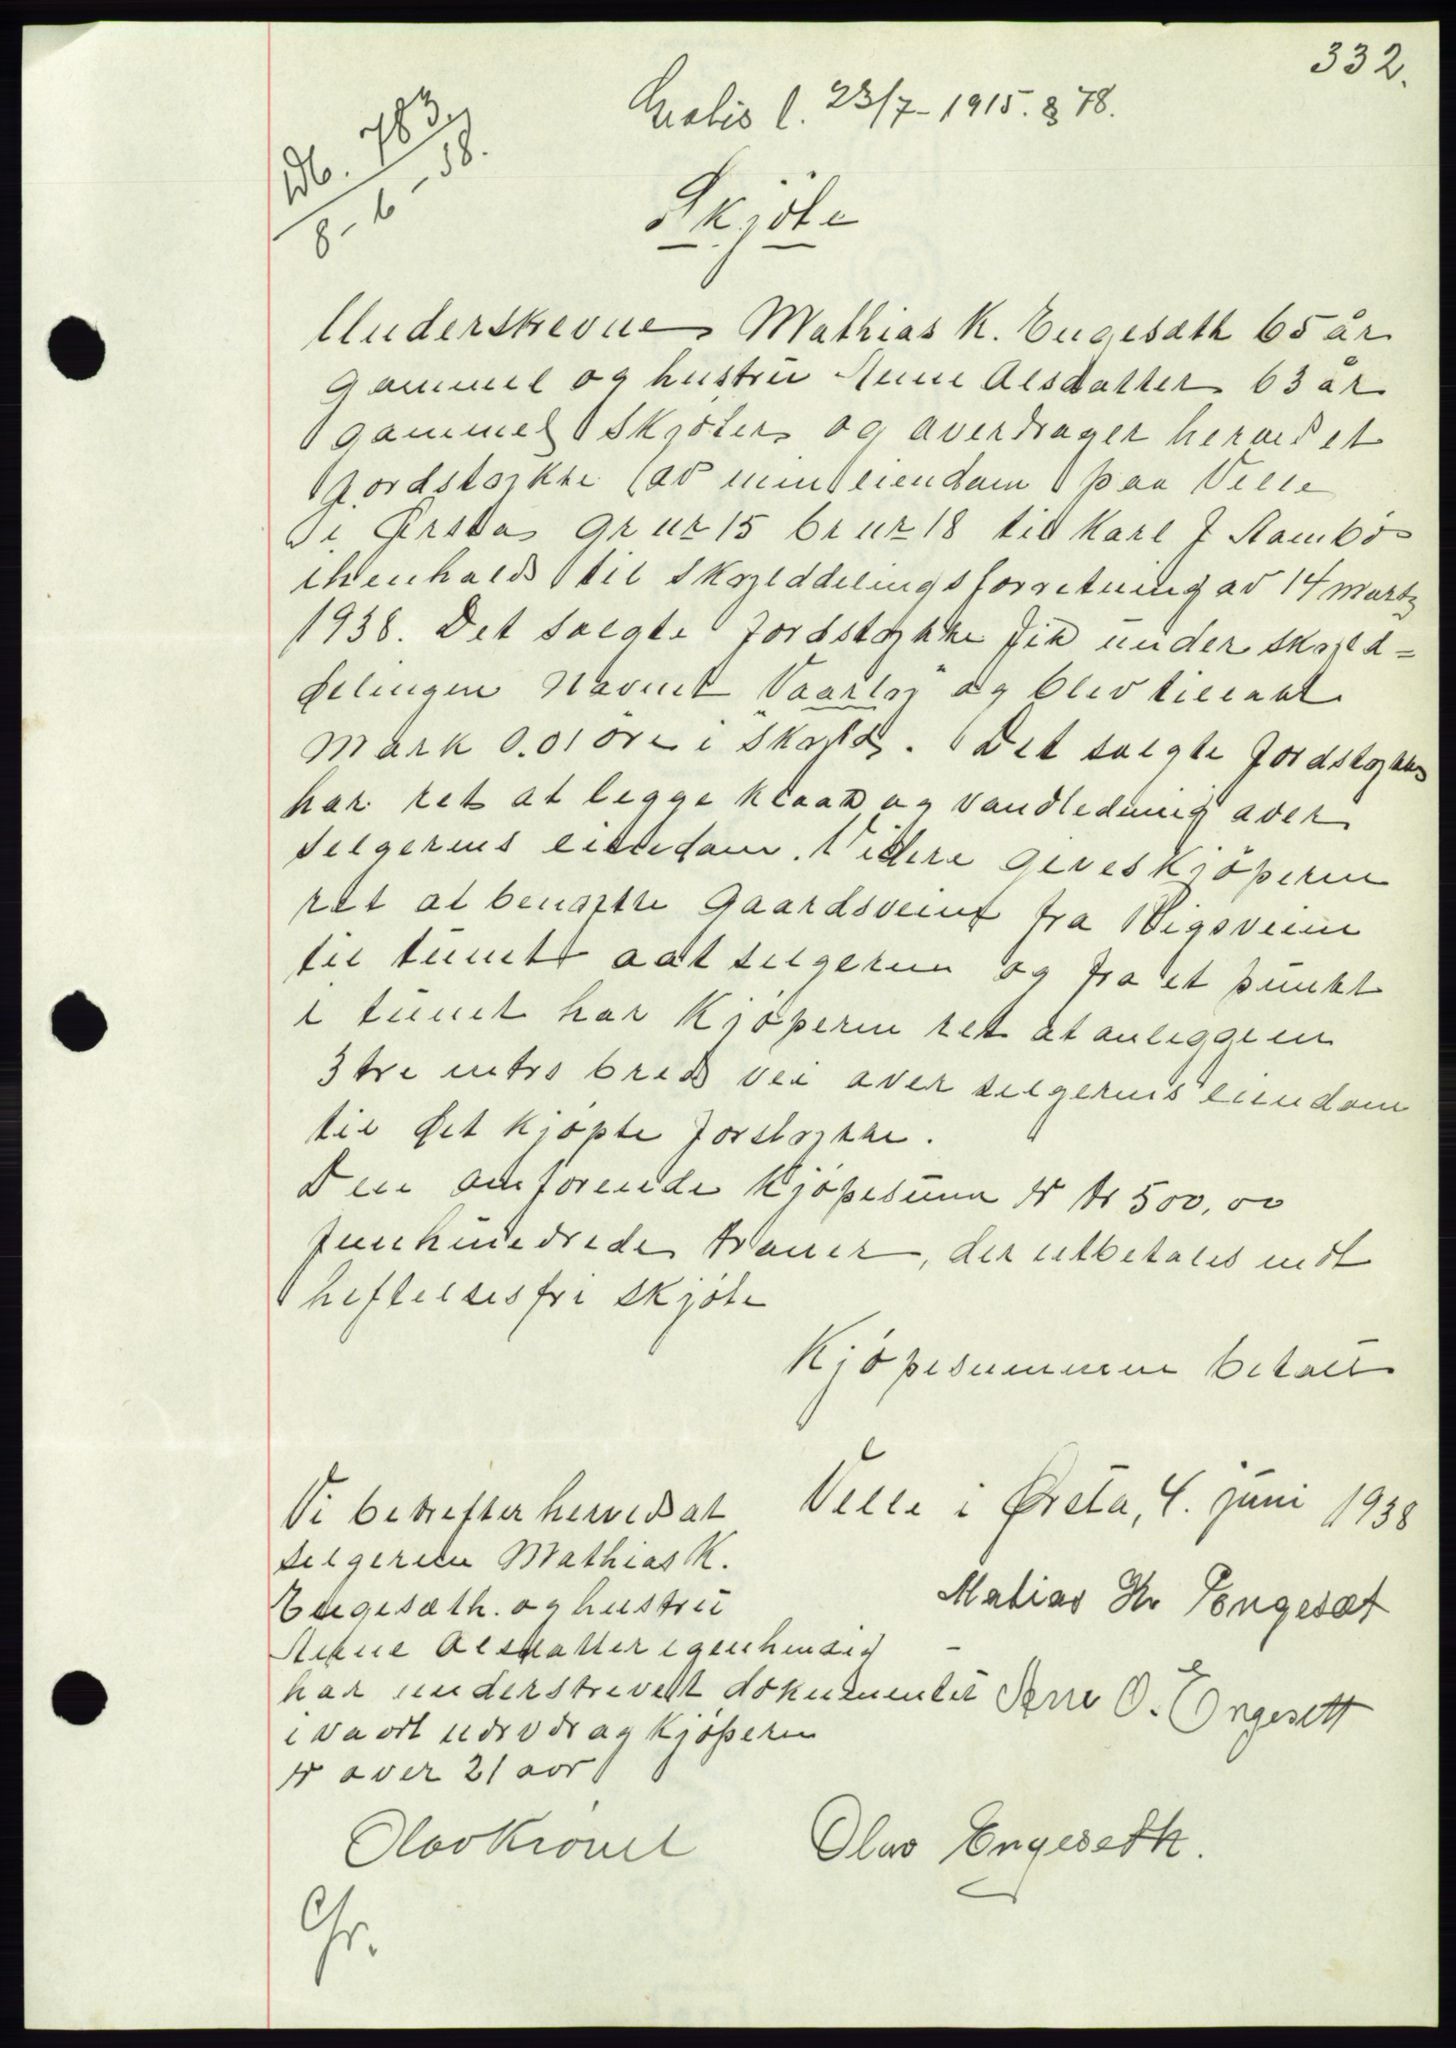 332.
Gratis l. 23/7-1915. § 78.
Db. 783
8-6-38.
Skjöte
Underskrevne Mathias K. Engesæth 65 år
gammel og hustru Anne Olsdatter 63 år
gammel skjöter og averdrager herved et
jordstykke av min eiendom paa Velle
i Ørsta grnr 15 brnr 18 til Karl J
ihenhold til skylddelingsforretning av 14 marts
1938. Det solgte Jordstykke fik under skyld-
delingen Navnet "Vaarly" og blev tillakt
Mark 0.01 öre i skyld. Det solgte Jordstykke
har ret at legge kloak og vandledning over
selgerens eiendom. Videre gives kjöperen
ret at benytte Gaardsveien fra Rigsveien
til tunet aat selgeren og fra et punkt
i tunet har Kjöperen ret at anlegge en
3 tre mtrs bred vei over selgerens eiendom
til det kjöpte jorstykke.
Den omforende kjöpesum er kr 500,00
femhundrede kroner, der utbetales mot
heftelsesfri skjöte
Kjöpesummen betalt
Velle i Ørsta, 4. juni 1938
Vi bekrefter herved at
selgeren Mathias K.
Engesæth. og hustru
Anne Olsdatter egenhendig
har underskrevet dokumentet
i vaort nærvær og kjöperen
er over 21 aor
Matias Kr Engesæt
Anne O. Engesett
Olav Krövel
Olav Engeseth.
Gr.